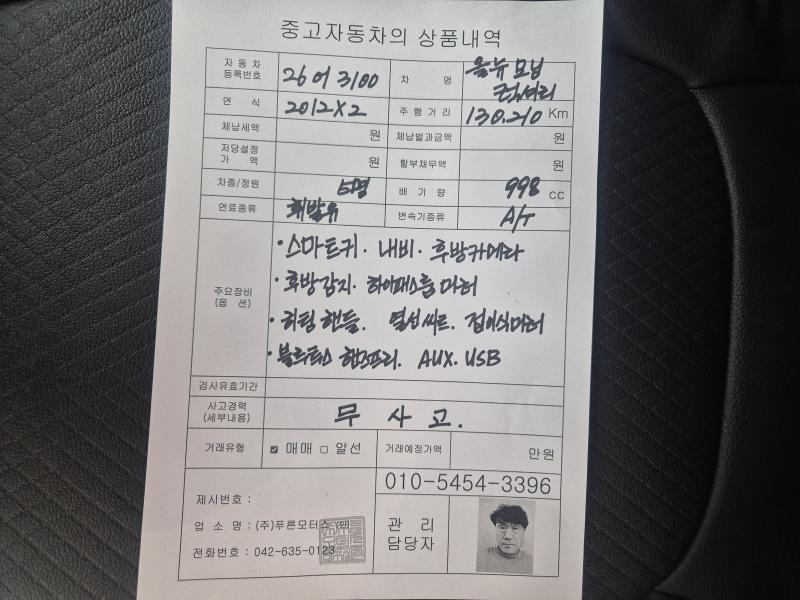 중고자동차의 상품내역
자동차 등록번호 26어 3100 차 명 올뉴모닝 럭셔리
연 식 2012X2 주행거리 130.210 Km
체납세액 원 체납벌과금액 원
저당설정 가 액 원 할부채무액 원
차종/정원 5명 배 기 량 998 CC
연료종류 휘발유 변속기종류 A/T
주요장비 (옵 션)
· 스마트키. 내비. 후방카메라
· 후방감지. 하이패스룸미러
· 히팅핸들. 열선씨트. 접이식미러
· 블루투스 핸즈프리. AUX. USB
검사유효기간
사고경력 (세부내용) 무 사 고.
거래유형 매매 알선 거래예정가액 만원
010-5454-3396
제시번호 :
업 소 명 : (주)푸른모터스
전화번호 : 042-635-0123
관 리 담당자